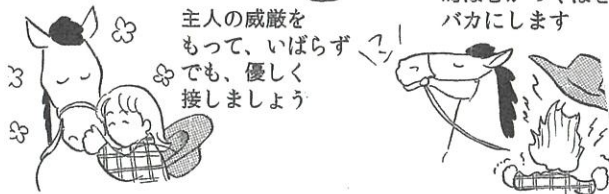 主人の威厳を
もって、いばらず
でも、優しく
接しましょう
バカにします